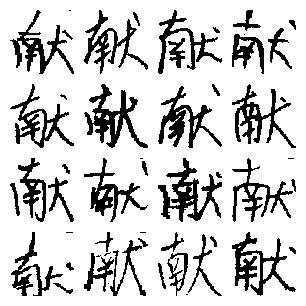 献献献献
献献献献
献献献献
献献献献